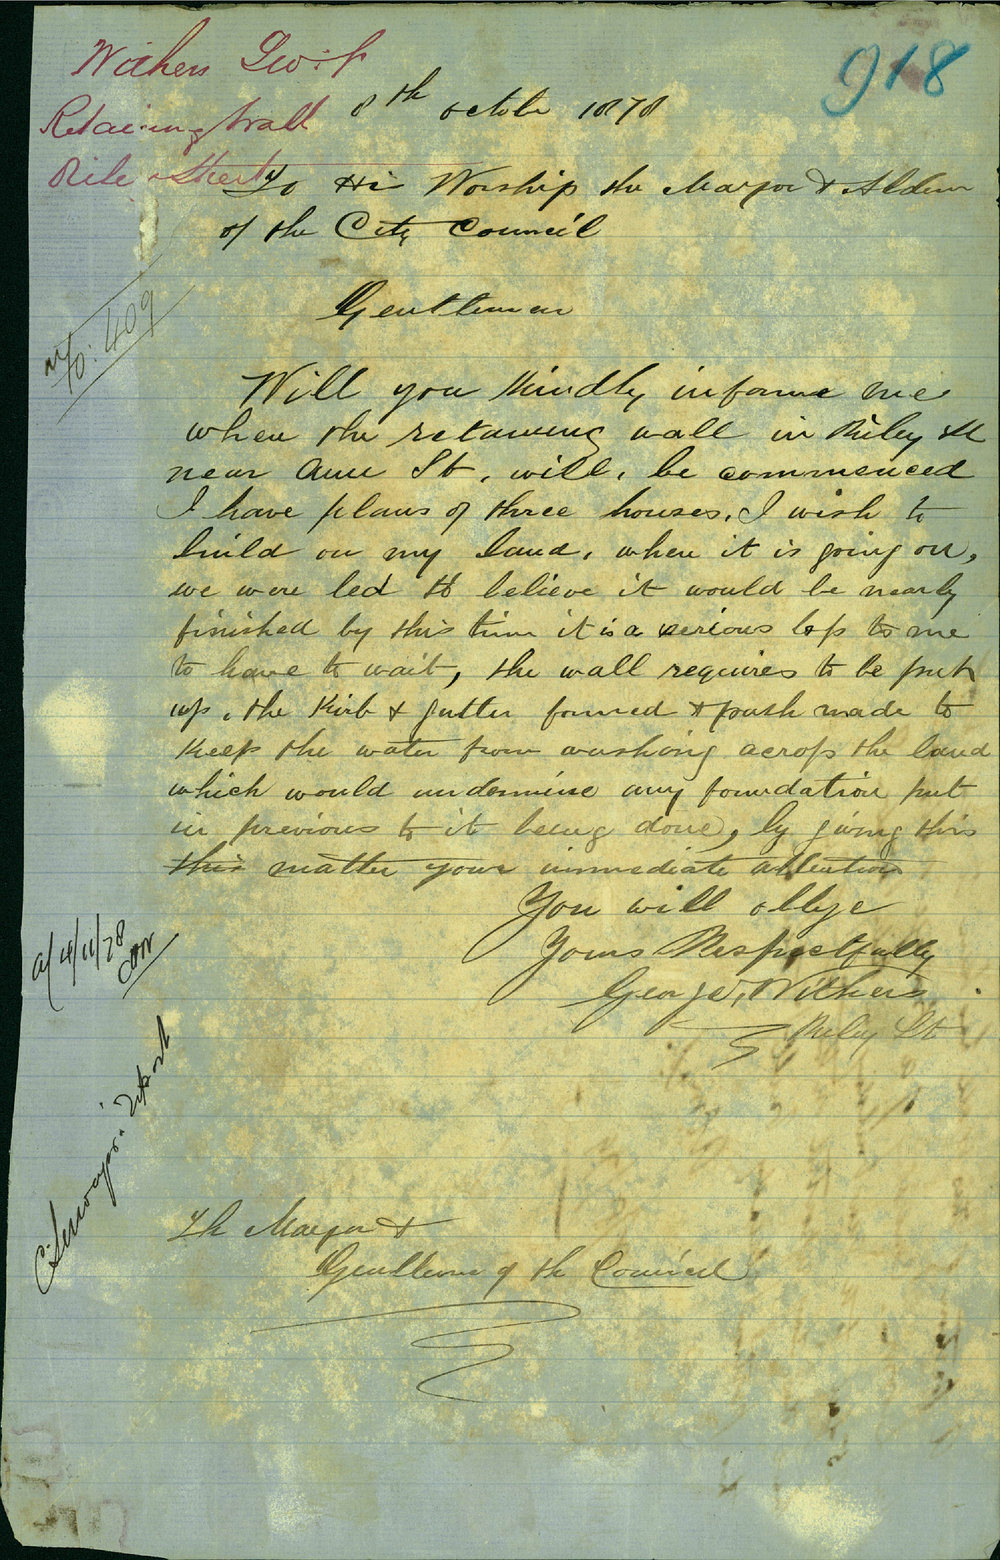 Withers Geo:
918
Retaining Wall
8th October 1878
Riley Street
To His Worship the Mayor & Aldmn
of the City Council
Gentlemen
No: 409
Will you kindly informe me
when the retaining wall in Riley St
near Ann St, will, be commenced
I have plans of three houses, I wish to
build on my land, when it is going on,
we were led to believe it would be nearly
finished by this time it is a serious loss to me
to have to wait, the wall requires to be put
up, the Kirb & gutter formed & path made to
Keep the water from washing across the land
which would undermine any foundation put
in previous to it being done, by giving this
this matter your immediate attention
You will oblige
Yours Respectfully
George Withers
Riley St
4/11/78
C. Surveyor. report
The Mayor &
Gentlemen of the Council